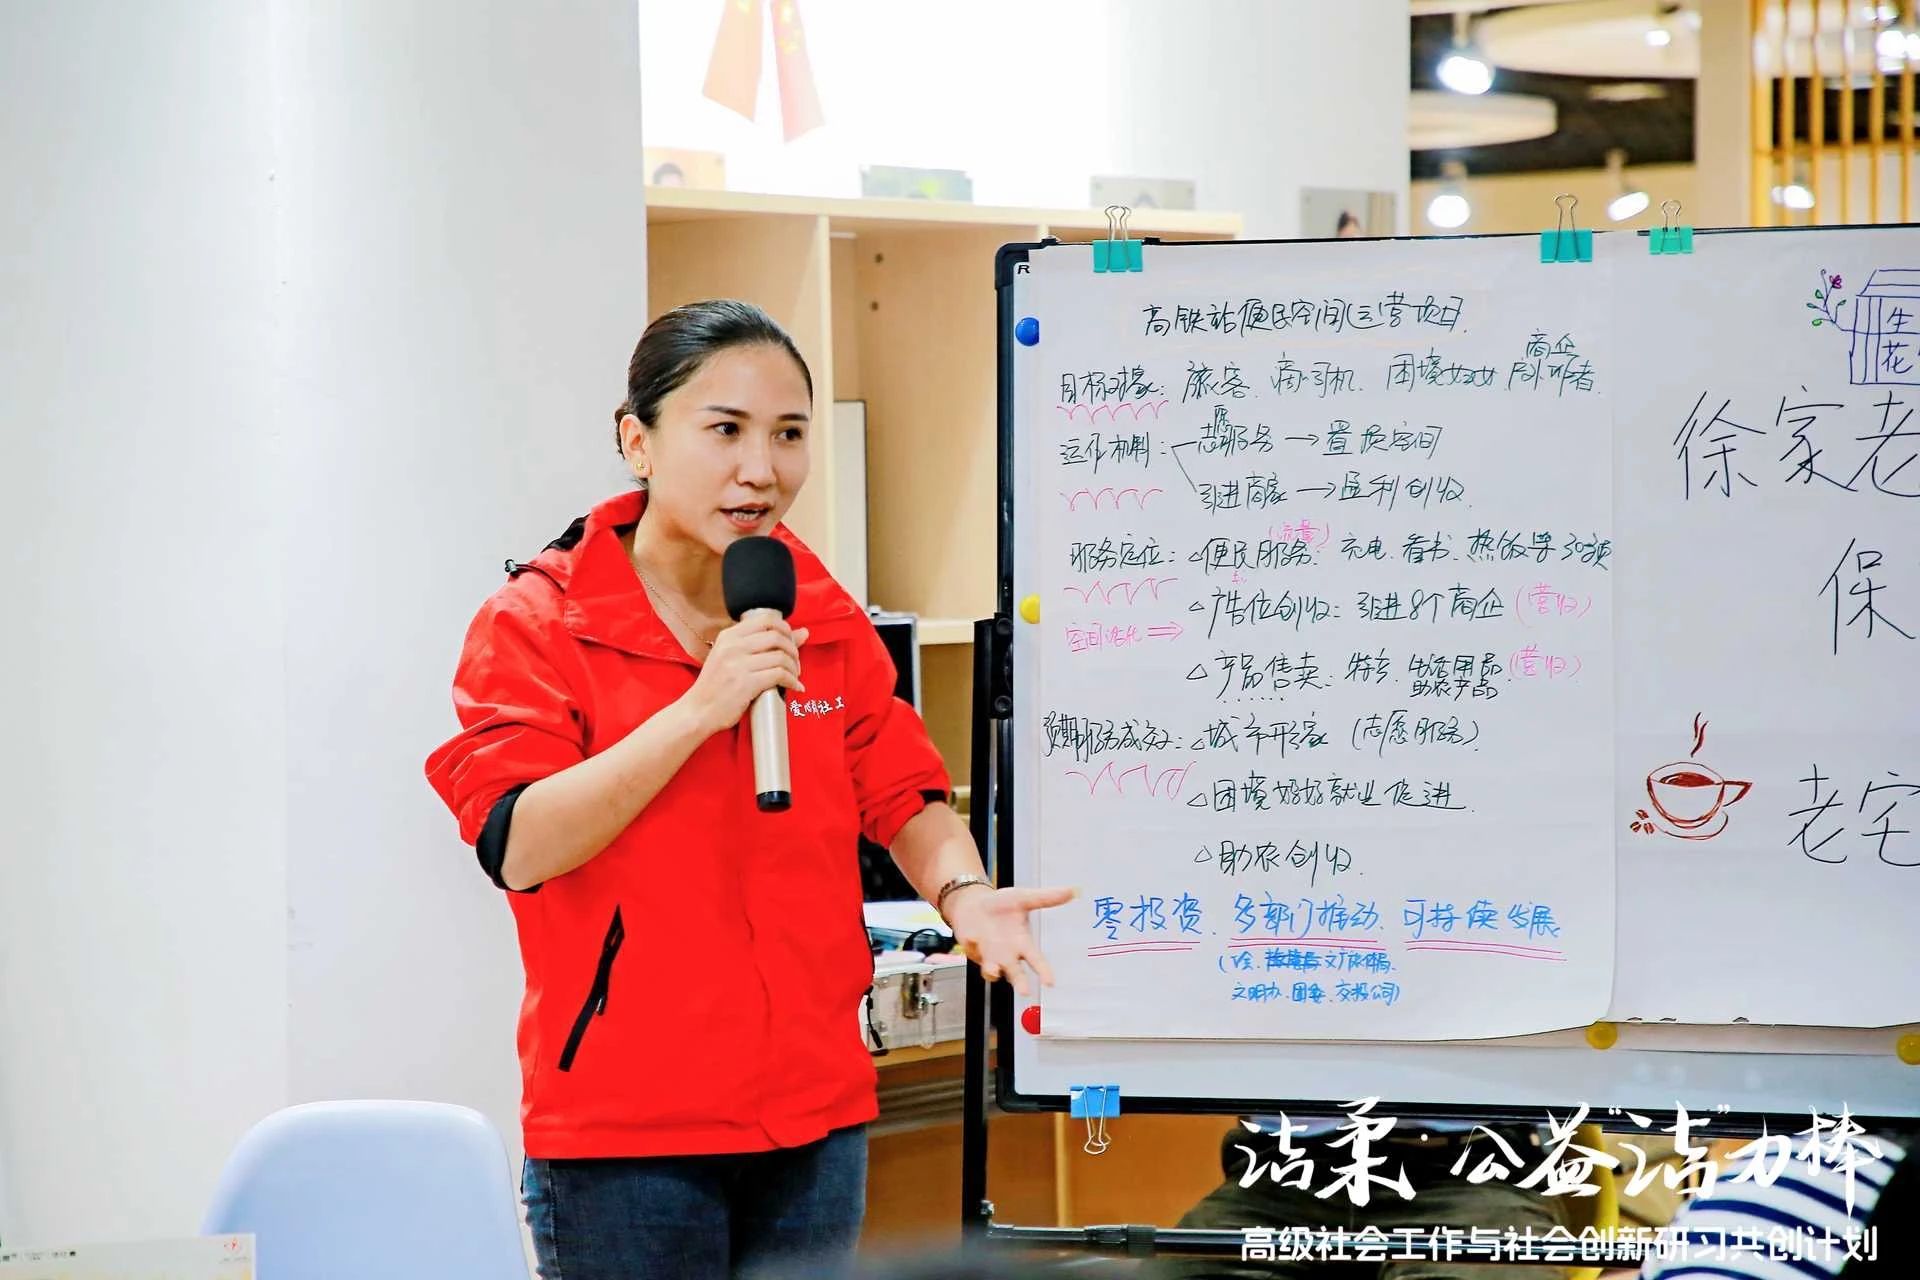 高铁站便民空间运营项目
商企
目标对象：旅客 商、司机 困境妇女
愿
运作机制：志服务→置换空间
引进商家→盈利创收
(流量)
服务定位：△便民服务：充电、看书、热饭等30项
△广告位创收：引进8个商企(营收)
空间活化⇒
△产品售卖：特产、生活用品(营收)
助农产品
预期服务成效：△城市形象(志愿服务)
△困境妇女就业促进
△助农创收
零投资、多部门推动、可持续发展
文明办、团委、交投公司)
生
花
徐家老
保
老宅
爱明社工
洁柔·公益"洁"力棒
高级社会工作与社会创新研习共创计划